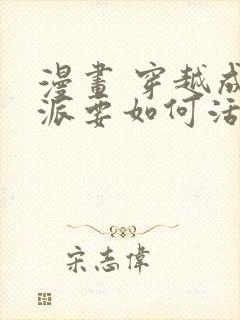 漫畫 穿越成
派要如何活
宋志偉